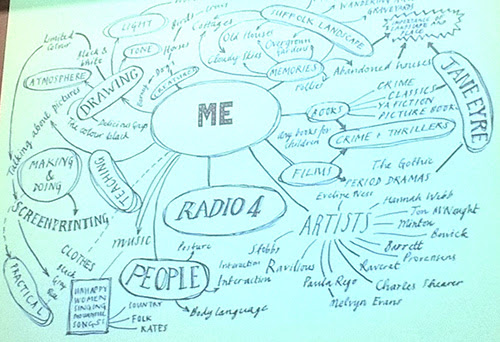 LIGHT
Cottages
SUFFOLK LANDSCAPE
WANDERING
GRAVEYARDS
Limited
Colour
Black &
White
TONE
Horses
Old Houses
Overgrown
Gardens
Cloudy Skies
ATMOSPHERE
DRAWING
Dogs
CREATURES
MEMORIES
Abandoned houses
JANE EYRE
Talking about pictures
The colour black
ME
BOOKS
CRIME
CLASSICS
YA FICTION
PICTURE BOOK
books for
children
CRIME + THRILLERS
MAKING
&
DOING
TEACHING
FILMS
The Gothic
PERIOD DRAMAS
Evelyn Ness
SCREENPRINTING
RADIO 4
ARTISTS
Hannah Webb
Jon McNaught
Minton
Bewick
Bawden
Barrett
Ravilious
Stubbs
Raverat
Charles Shearer
Paula Rego
Melvyn Evans
CLOTHES
Black
Grey
Blue
MUSIC
Posture
PEOPLE
Interaction
Interaction
Body Language
PRACTICAL
UNHAPPY
WOMEN
SINGING
MOURNFUL
SONGS
COUNTRY
FOLK
KATES